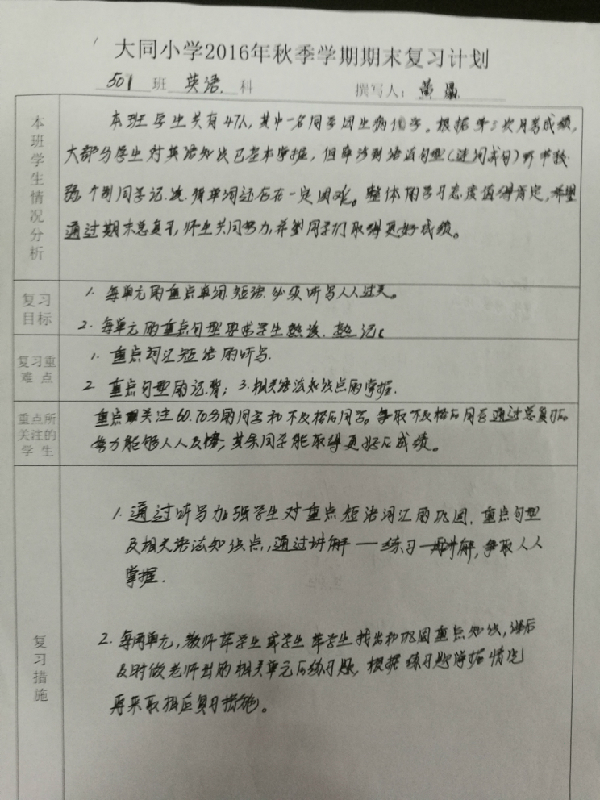 大同小学2016年秋季学期期末复习计划
501 班 英语 科 撰写人：
本班学生情况分析
本班学生共有47人，其中一名同学因生病休学。根据第三次月考成绩，
大部分学生对英语知识已基本掌握，但
个别同学记 单词还存在一定困难。整体的学习态度值得肯定，希望
通过期末总复习，师生共同努力，希望同学们取得更好成绩。
复习目标
1. 每单元的重点单词、短语、 听写人人过关。
2. 每单元的重点句型要求学生熟读、熟记。
复习重难点
1. 重点词汇短语的听写。
2. 重点句型的运用；3. 相关语法知识点的掌握。
重点所关注的学生
重点关注60、70分的同学和不及格的同学。争取不及格的同学通过总复习的
努力能够人人及格，其余同学能取得更好的成绩。
复习措施
1. 通过听写加强学生对重点短语词汇的巩固，重点句型
及相关语法知识点，通过讲解——练习—讲解，争取人人
掌握。
2. 每两单元，教师带学生或学生带学生找出和巩固重点知识，课后
及时做老师出的相关单元的练习题，根据练习题 情况
再采取相应复习措施。